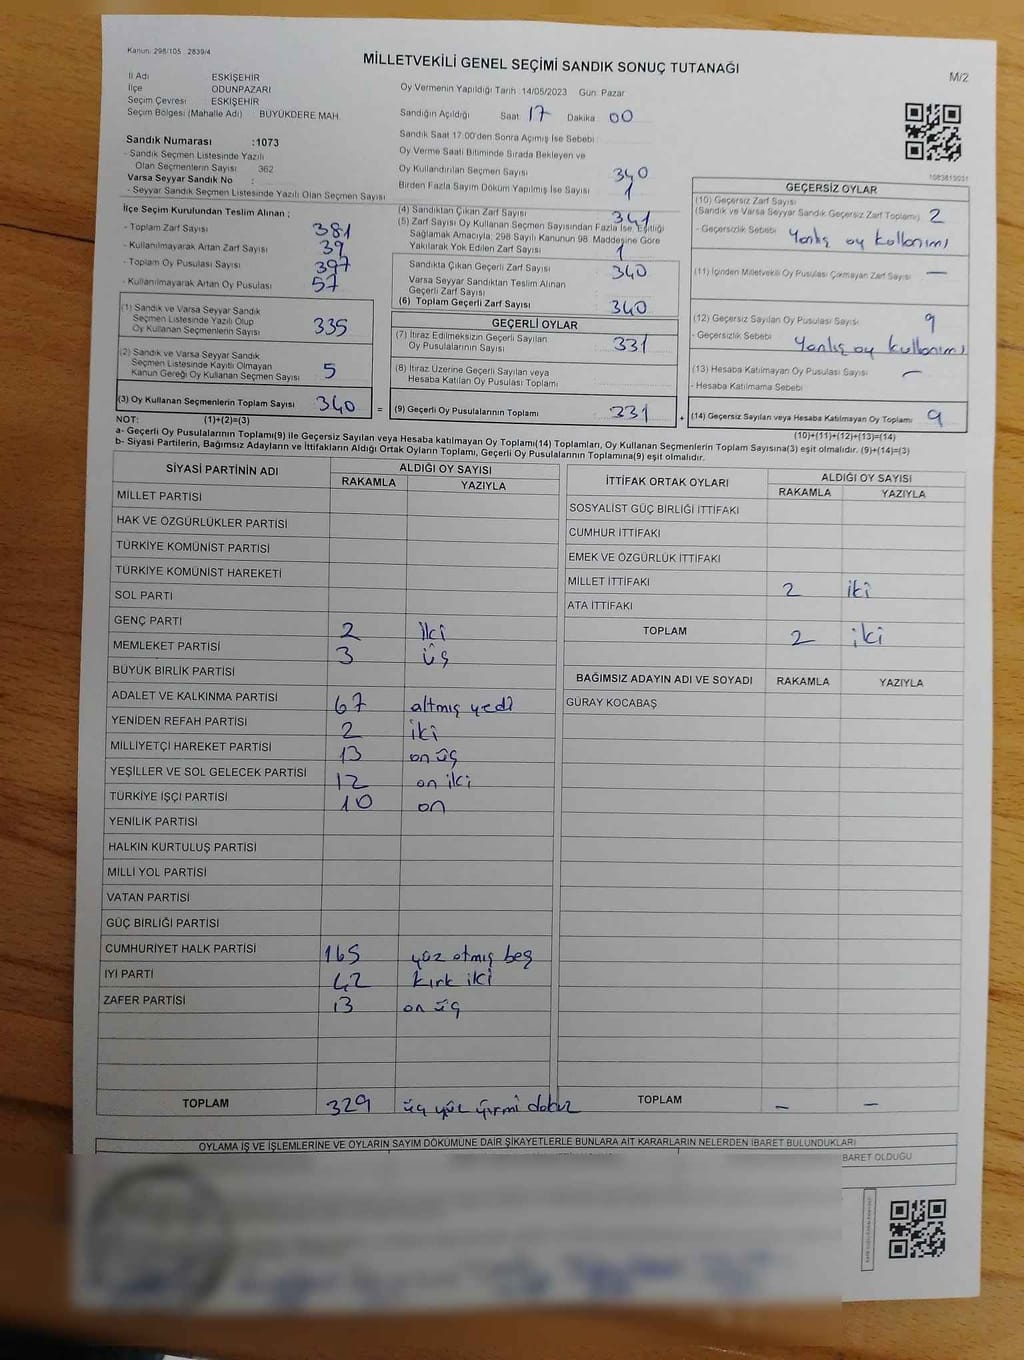 Kanun: 298/105 2839/4
MİLLETVEKİLİ GENEL SEÇİMİ SANDIK SONUÇ TUTANAĞI
M/2
İl Adı ESKİŞEHİR
İlçe ODUNPAZARI
Seçim Çevresi : ESKİŞEHİR
Seçim Bölgesi (Mahalle Adı) : BÜYÜKDERE MAH.
Sandık Numarası :1073
- Sandık Seçmen Listesinde Yazılı
Olan Seçmenlerin Sayısı : 362
Varsa Seyyar Sandık No :
- Seyyar Sandık Seçmen Listesinde Yazılı Olan Seçmen Sayısı
Oy Vermenin Yapıldığı Tarih :14/05/2023 Gün: Pazar
Sandığın Açıldığı Saat 17 Dakika 00
Sandık Saat 17.00'den Sonra Açımış İse Sebebi
Oy Verme Saati Bitiminde Sırada Bekleyen ve
Oy Kullandırılan Seçmen Sayısı 340
Birden Fazla Sayım Döküm Yapılmış İse Sayısı 1
İlçe Seçim Kurulundan Teslim Alınan ;
- Toplam Zarf Sayısı 381
- Kullanılmayarak Artan Zarf Sayısı 39
- Toplam Oy Pusulası Sayısı 397
- Kullanılmayarak Artan Oy Pusulası 57
(1) Sandık ve Varsa Seyyar Sandık
Seçmen Listesinde Yazılı Olup
Oy Kullanan Seçmenlerin Sayısı 335
(2) Sandık ve Varsa Seyyar Sandık
Seçmen Listesinde Kayıtlı Olmayan
Kanun Gereği Oy Kullanan Seçmen Sayısı 5
(3) Oy Kullanan Seçmenlerin Toplam Sayısı 340 =
(4) Sandıktan Çıkan Zarf Sayısı 341
(5) Zarf Sayısı Oy Kullanan Seçmen Sayısından Fazla İse, Eşitliği
Sağlamak Amacıyla, 298 Sayılı Kanunun 98. Maddesine Göre
Yakılarak Yok Edilen Zarf Sayısı 1
Sandıkta Çıkan Geçerli Zarf Sayısı 340
Varsa Seyyar Sandıktan Teslim Alınan
Geçerli Zarf Sayısı
(6) Toplam Geçerli Zarf Sayısı 340
GEÇERLİ OYLAR
(7) İtiraz Edilmeksizin Geçerli Sayılan
Oy Pusulalarının Sayısı 331
(8) İtiraz Üzerine Geçerli Sayılan veya
Hesaba Katılan Oy Pusulası Toplamı
(9) Geçerli Oy Pusulalarının Toplamı 331 +
GEÇERSİZ OYLAR
(10) Geçersiz Zarf Sayısı
(Sandık ve Varsa Seyyar Sandık Geçersiz Zarf Toplamı) 2
- Geçersizlik Sebebi Yanlış oy kullanımı
(11) İçinden Milletvekili Oy Pusulası Çıkmayan Zarf Sayısı —
(12) Geçersiz Sayılan Oy Pusulası Sayısı 9
- Geçersizlik Sebebi Yanlış oy kullanımı
(13) Hesaba Katılmayan Oy Pusulası Sayısı —
- Hesaba Katılmama Sebebi
(14) Geçersiz Sayılan veya Hesaba Katılmayan Oy Toplamı 9
NOT: (1)+(2)=(3)
(10)+(11)+(12)+(13)=(14)
a- Geçerli Oy Pusulalarının Toplamı(9) ile Geçersiz Sayılan veya Hesaba katılmayan Oy Toplamı(14) Toplamları, Oy Kullanan Seçmenlerin Toplam Sayısına(3) eşit olmalıdır. (9)+(14)=(3)
b- Siyasi Partilerin, Bağımsız Adayların ve İttifakların Aldığı Ortak Oyların Toplamı, Geçerli Oy Pusulalarının Toplamına(9) eşit olmalıdır.
SİYASİ PARTİNİN ADI ALDIĞI OY SAYISI
RAKAMLA YAZIYLA
MİLLET PARTİSİ
HAK VE ÖZGÜRLÜKLER PARTİSİ
TÜRKİYE KOMÜNİST PARTİSİ
TÜRKİYE KOMÜNİST HAREKETİ
SOL PARTİ
GENÇ PARTİ 2 iki
MEMLEKET PARTİSİ 3 üç
BÜYÜK BİRLİK PARTİSİ
ADALET VE KALKINMA PARTİSİ 67 altmış yedi
YENİDEN REFAH PARTİSİ 2 iki
MİLLİYETÇİ HAREKET PARTİSİ 13 on üç
YEŞİLLER VE SOL GELECEK PARTİSİ 12 on iki
TÜRKİYE İŞÇİ PARTİSİ 10 on
YENİLİK PARTİSİ
HALKIN KURTULUŞ PARTİSİ
MİLLİ YOL PARTİSİ
VATAN PARTİSİ
GÜÇ BİRLİĞİ PARTİSİ
CUMHURİYET HALK PARTİSİ 165 yüz atmış beş
İYİ PARTİ 42 kırk iki
ZAFER PARTİSİ 13 on üç
TOPLAM 329 üç yüz yirmi dokuz
İTTİFAK ORTAK OYLARI ALDIĞI OY SAYISI
RAKAMLA YAZIYLA
SOSYALİST GÜÇ BİRLİĞİ İTTİFAKI
CUMHUR İTTİFAKI
EMEK VE ÖZGÜRLÜK İTTİFAKI
MİLLET İTTİFAKI 2 iki
ATA İTTİFAKI
TOPLAM 2 iki
BAĞIMSIZ ADAYIN ADI VE SOYADI RAKAMLA YAZIYLA
GÜRAY KOCABAŞ
TOPLAM — —
OYLAMA İŞ VE İŞLEMLERİNE VE OYLARIN SAYIM DÖKÜMÜNE DAİR ŞİKAYETLERLE BUNLARA AİT KARARLARIN NELERDEN İBARET BULUNDUKLARI
BARET OLDUĞU